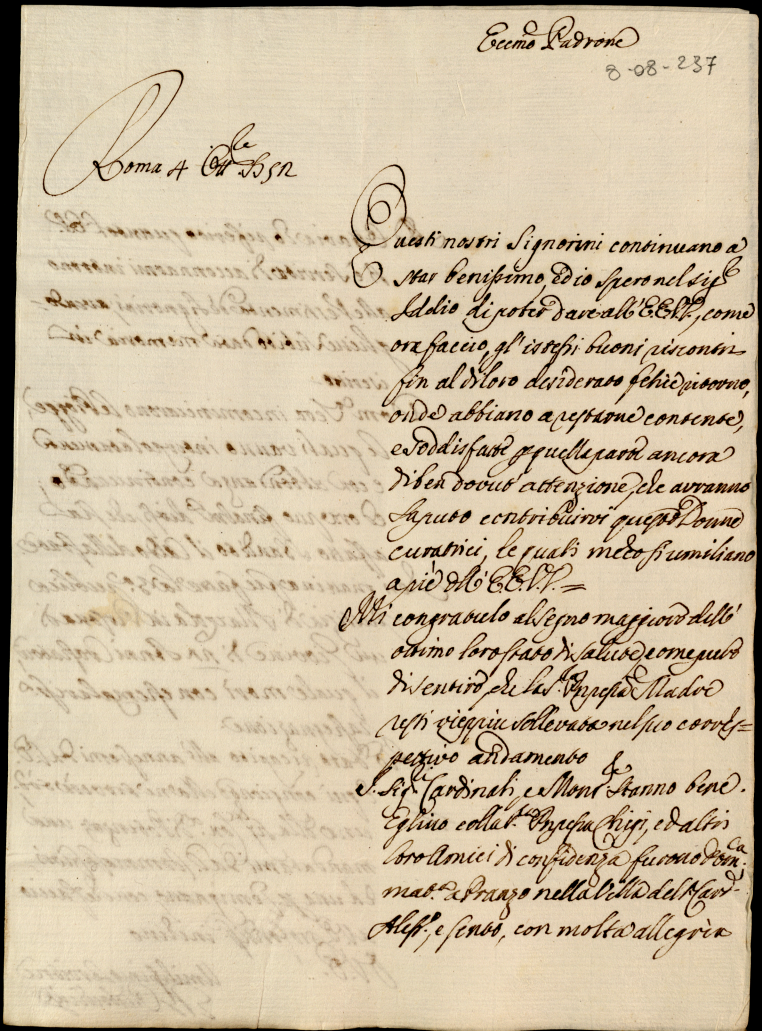 Eccmo Padrone
8-08-237
Roma 4 1752
Questi nostri Signorini continuano a
star benissimo, ed io spero nel Sigre
Iddio di poter dare all'EE.VV., come
ora faccio, gl'istessi buoni riscontri
fin al di loro desiderato felice ritorno,
onde abbiano a restarne contente,
e soddisfatte p quella parte ancora
di ben dovuta attenzione, che avranno
saputo contribuirvi queste Donne
curatrici, le quali meco si umiliano
a piè dell'EE.VV. =
Mi congratulo al segno maggiore dell'
ottimo loro stato di salute, come pure
di sentire, che la Sra Pnpessa Madre
resti vieppiù sollevata nel suo corres=
pettivo andamento
I Sigri Cardinali, e Monre stanno bene.
Eglino colla Sra Pnpessa Chigi, ed altri
loro Amici di confidenza furono Domca
matna a Pranzo nella Villa del Card.
Alessro, e sento, con molta allegria